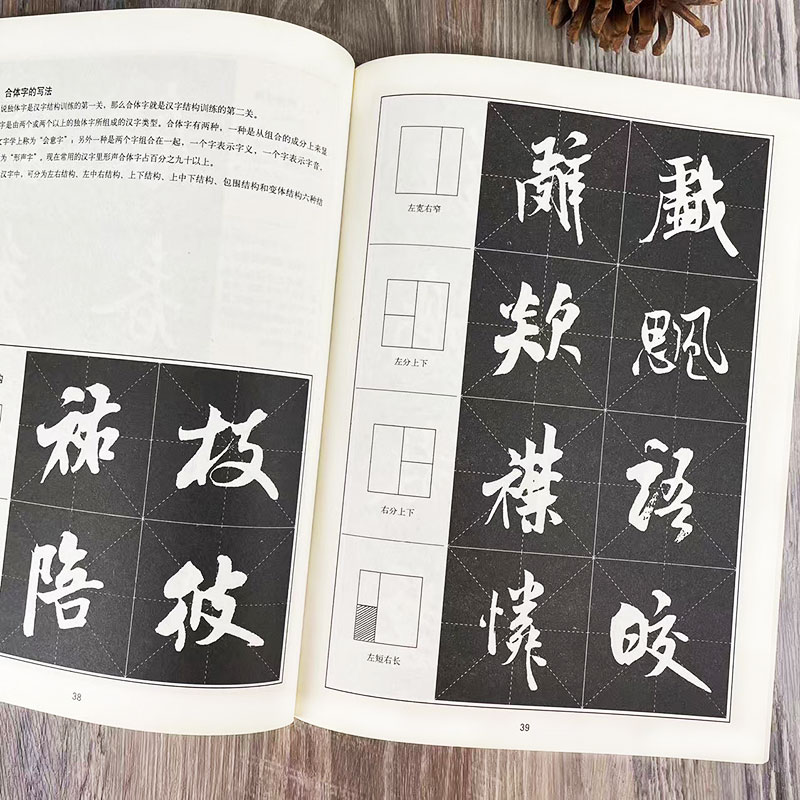 合体字的写法
说独体字是汉字结构训练的第一关，那么合体字就是汉字结构训练的第二关。
字是由两个或两个以上的独体字所组成的汉字类型。合体字有两种，一种是从组合的成分上来显
文字学上称为“会意字”；另外一种是两个字组合在一起，一个字表示字义，一个字表示字音，
为“形声字”，现在常用的汉字里形声合体字占百分之九十以上。
汉字中，可分为左右结构、左中右结构、上下结构、上中下结构、包围结构和变体结构六种结
祐 枝
陪 彼
38
左宽右窄
戲
左分上下
右分上下
語
左短右长
憐 皎
39